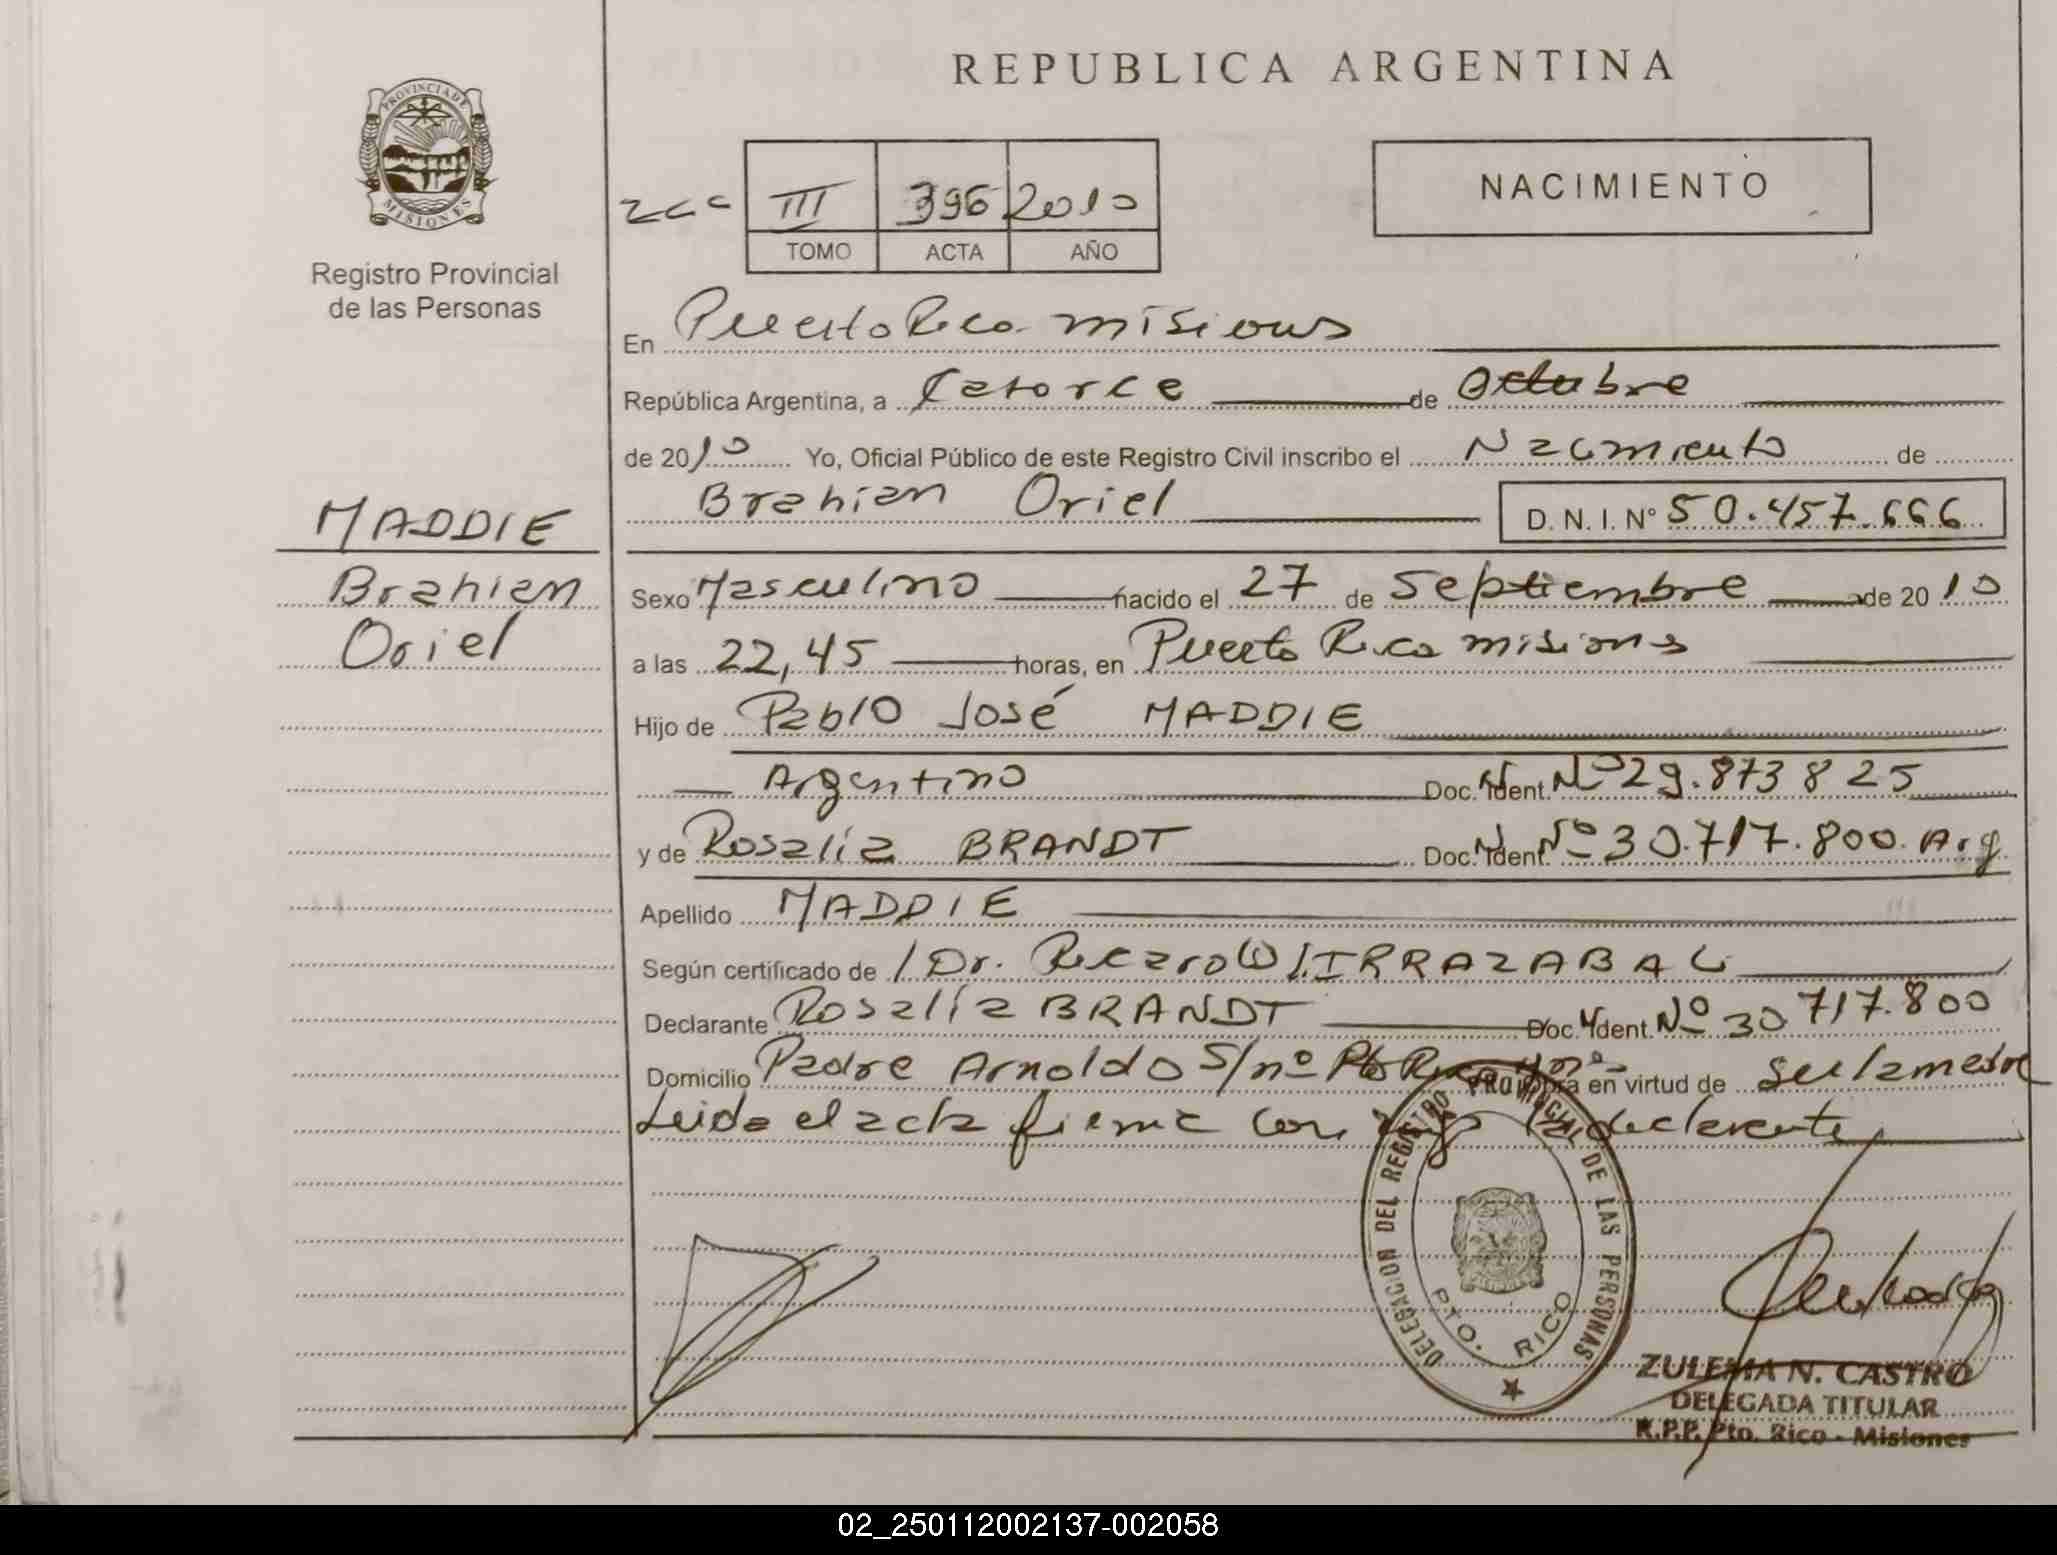 REPUBLICA ARGENTINA
PROVINCIA DE MISIONES
Registro Provincial
de las Personas
III 396 2010
TOMO ACTA AÑO
NACIMIENTO
En Puerto Rico misiones
República Argentina, a Catorce de Octubre
de 2010 Yo, Oficial Público de este Registro Civil inscribo el Nacimiento de
Brahian Oriel D. N. I. N° 50.457.666
MADDIE
Brahian
Oriel
Sexo Masculino nacido el 27 de Septiembre de 2010
a las 22,45 horas, en Puerto Rico misiones
Hijo de Pablo José MADDIE
Argentino Doc. Ident. Nº 29.873825
y de Rosalía BRANDT Doc. Ident. Nº 30.717.800. Arg
Apellido MADDIE
Según certificado de Dr. Ricardo IRRAZABAL
Declarante Rosalía BRANDT Doc. Ident. Nº 30717.800
Domicilio Padre Arnoldo S/nº Pto Rico en virtud de ser la madre
Leida el acta firma con la declarante
DELEGACION DEL REGISTRO PROVINCIAL DE LAS PERSONAS
PTO. RICO
ZULEMA N. CASTRO
DELEGADA TITULAR
R.P.P. Pto. Rico - Misiones
02_250112002137-002058